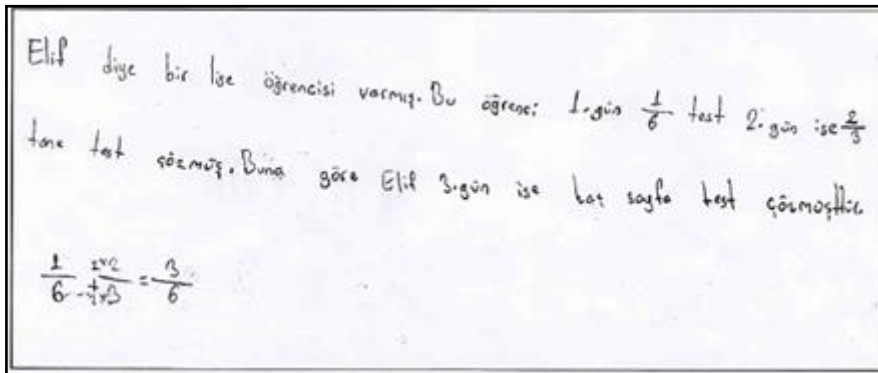 Elif diye bir lise öğrencisi varmış. Bu öğrenci 1. gün 1/6 test 2. gün ise 2/3
tane test çözmüş. Buna göre Elif 3. gün ise kaç sayfa test çözmüştür
1/6 = 3/6